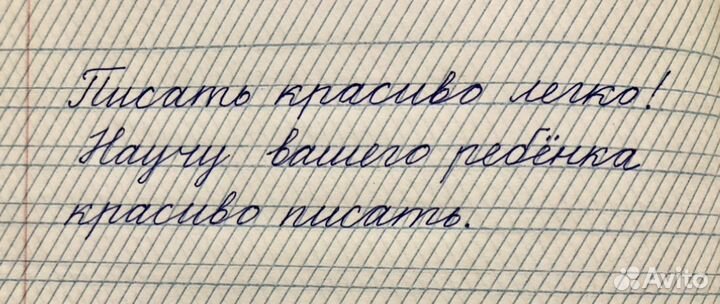 Писать красиво легко!
Научу вашего ребёнка
красиво писать.
Avito